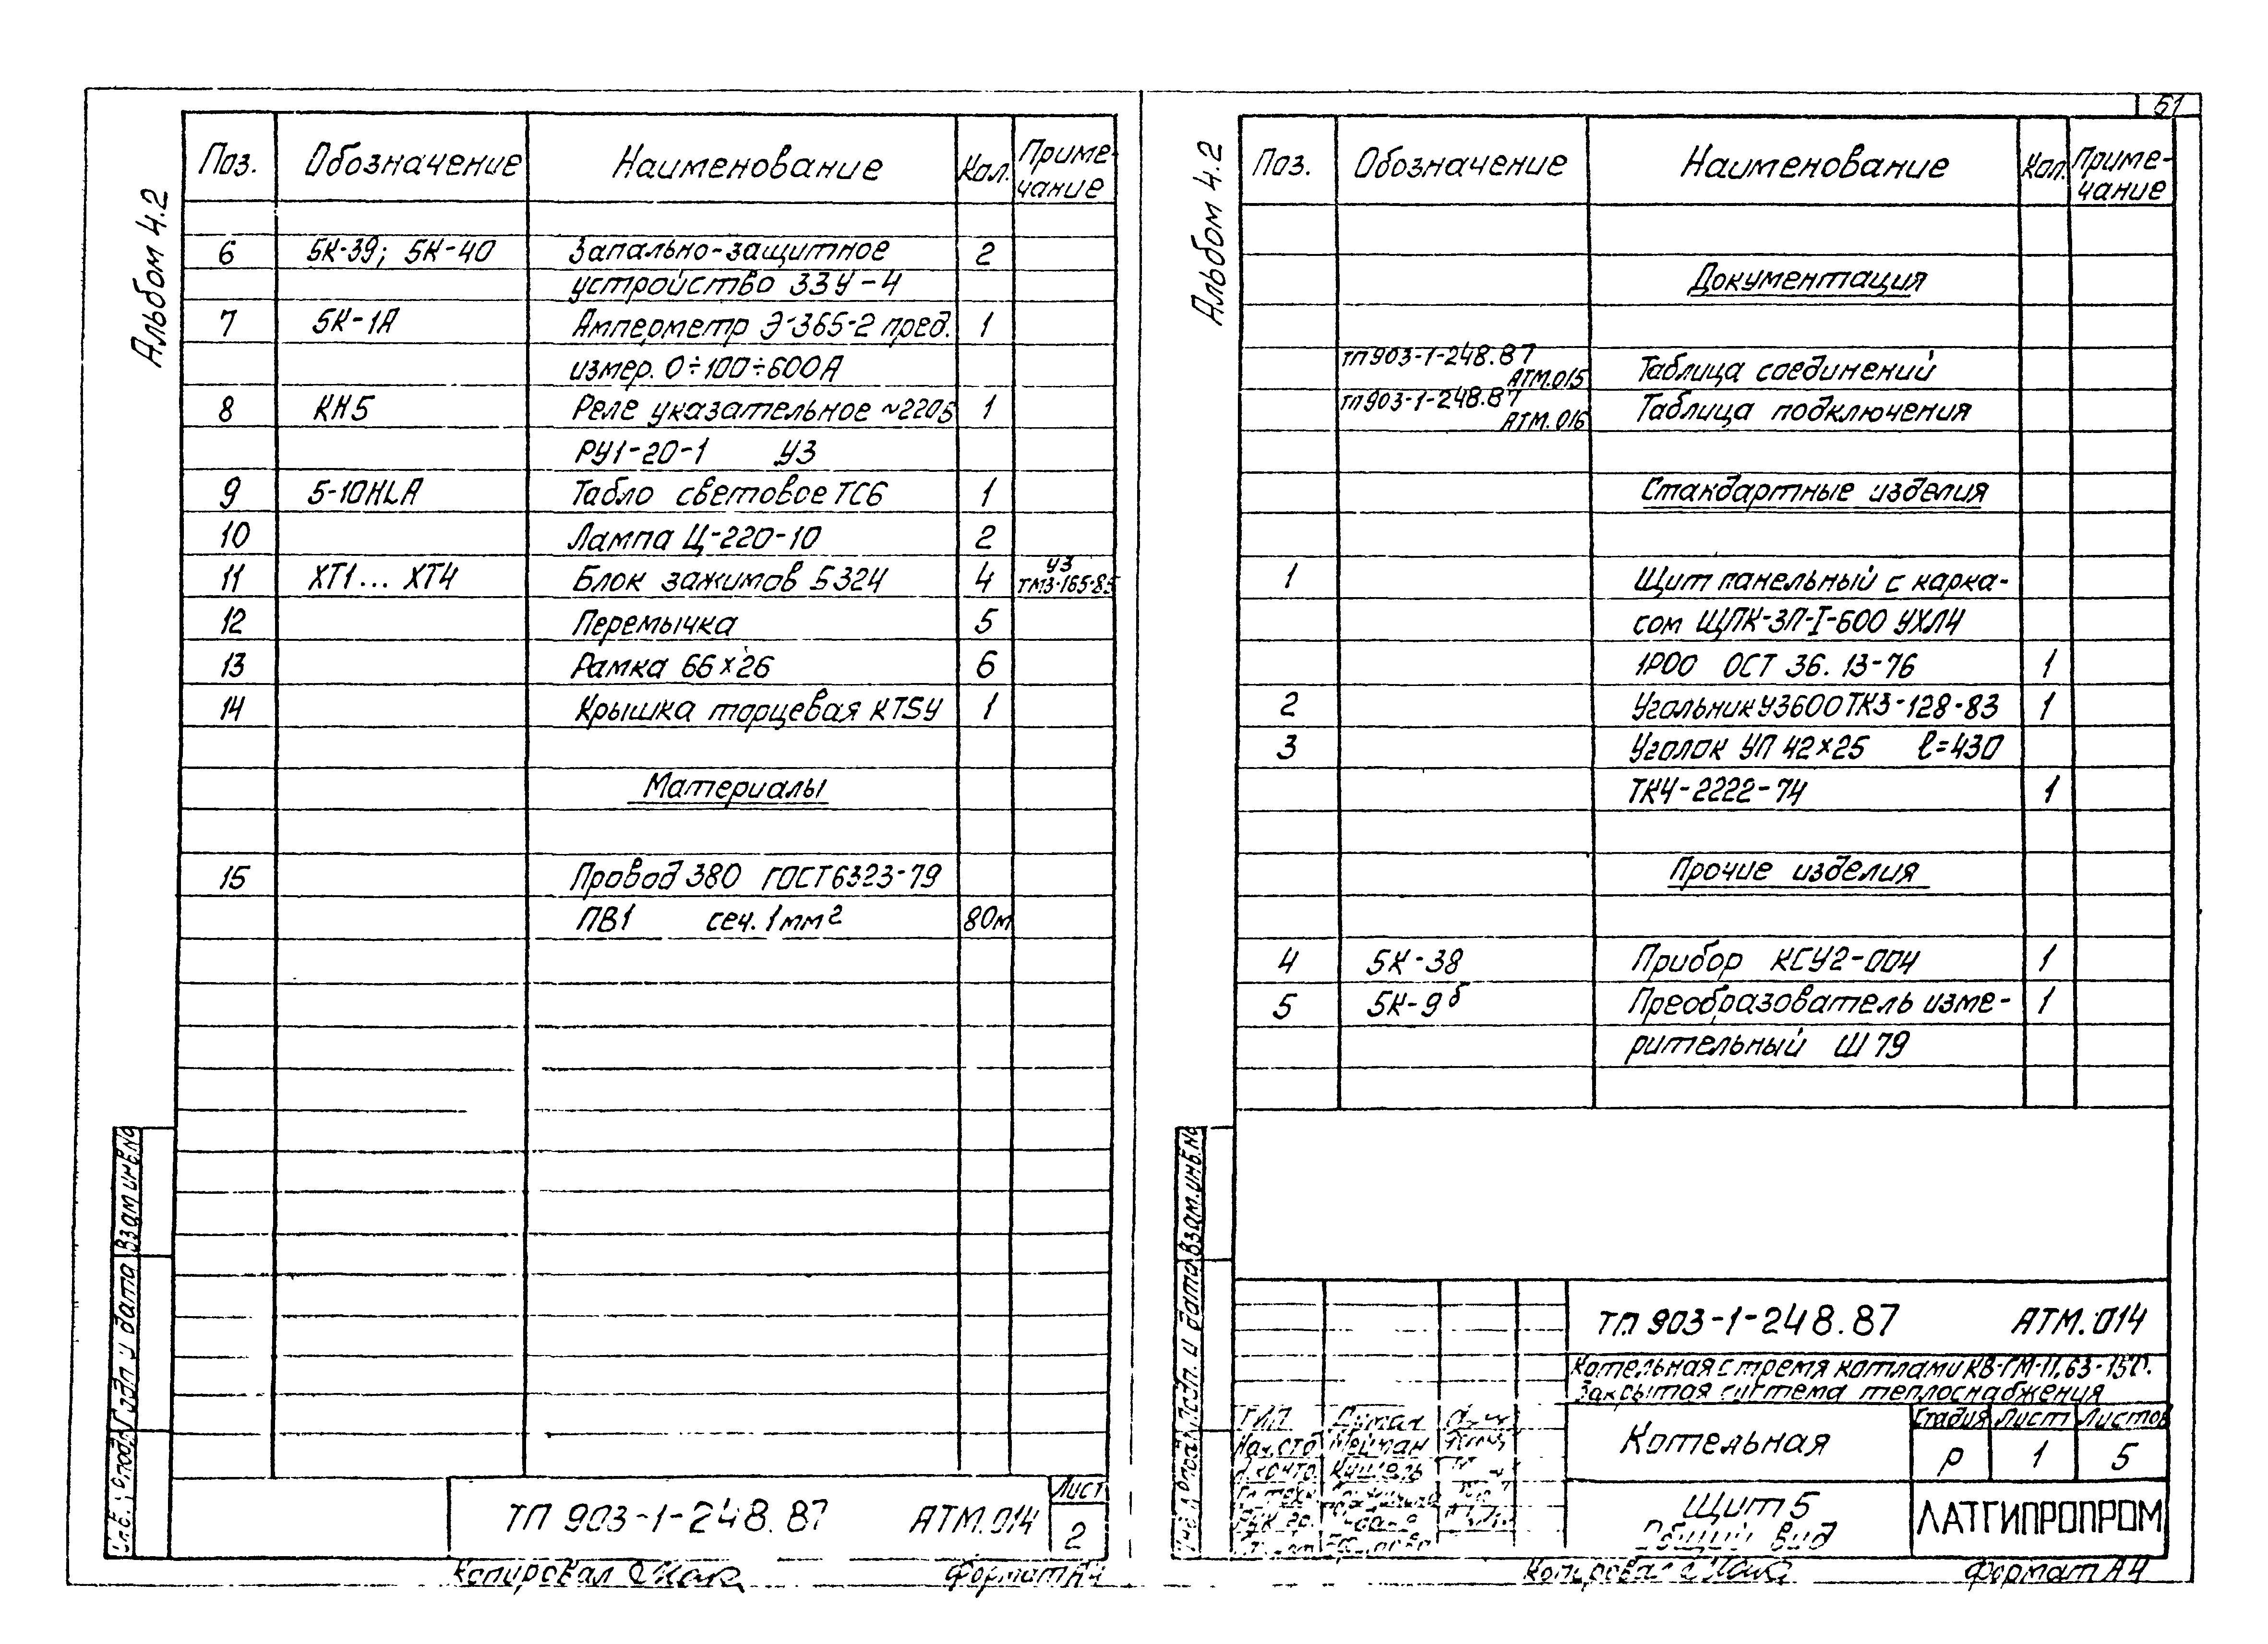 51
Альбом 4.2
Поз. Обозначение Наименование Кол. Приме-
чание
6 5К-39; 5К-40 Запально-защитное 2
устройство ЗЗУ-4
7 5К-1А Амперметр Э-365-2 пред. 1
измер. 0÷100÷600А
8 КН5 Реле указательное ~220Б 1
РУ1-20-1 У3
9 5-10HLA Табло световое ТСБ 1
10 Лампа Ц-220-10 2
11 ХТ1... ХТ4 Блок зажимов Б324 4 У3
ТМ3-165-85
12 Перемычка 5
13 Рамка 66×26 6
14 Крышка торцевая КТ5У 1
Материалы
15 Провод 380 ГОСТ 6323-79
ПВ1 сеч. 1 мм² 80м
Взам инв.№
Подп и дата
ТП 903-1-248.87 АТМ.014
Лист
2
Копировал
Формат А4
Альбом 4.2
Поз. Обозначение Наименование Кол. Приме-
чание
Документация
ТП903-1-248.87
АТМ.015 Таблица соединений
ТП903-1-248.87
АТМ.016 Таблица подключения
Стандартные изделия
1 Щит панельный с карка-
сом ЩПК-ЗП-I-600 УХЛ4
1Р00 ОСТ 36.13-76 1
2 Угольник У3600 ТК3-128-83 1
3 Уголок УП 42×25 ℓ=430
ТК4-2222-74 1
Прочие изделия
4 5К-38 Прибор КСУ2-004 1
5 5К-9б Преобразователь изме- 1
рительный Ш79
Взам.инв.№
Подп. и дата
ТП 903-1-248.87 АТМ.014
Котельная с тремя котлами КВ-ГМ-11,63-150.
Закрытая система теплоснабжения
ГИП
Нач.отд Мейман
Н.контр
Котельная
Стадия Лист Листов
Р 1 5
Щит 5
Общий вид
ЛАТГИПРОПРОМ
Копировал
Формат А4